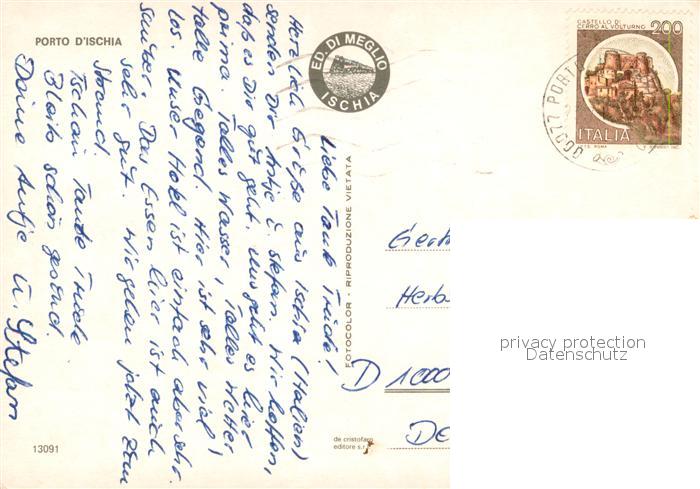 PORTO D'ISCHIA
ED. DI MEGLIO
ISCHIA
CASTELLO DI
CERRO AL VOLTURNO
200
ITALIA
I.P.S. ROMA
80077 PORTO
Liebe Tante Trude!
Herzliche Grüße aus Ischia (Italien)
senden Dir Antje u. Stefan. Wir hoffen,
daß es Dir gut geht. Uns geht es hier
prima. Tolles Wasser, Tolles Wetter
tolle Gegend. Hier ist sehr viel
los. Unser Hotel ist einfach aber sehr
sauber. Das Essen hier ist auch
sehr gut. Wir gehen jetzt zum
Strand.
Tschau Tante Trude
Bleib schön gesund.
Deine Antje u. Stefan
FOTOCOLOR - RIPRODUZIONE VIETATA
Gert
Herb
D 1000
privacy protection
Datenschutz
de cristofaro
editore s.r.
13091